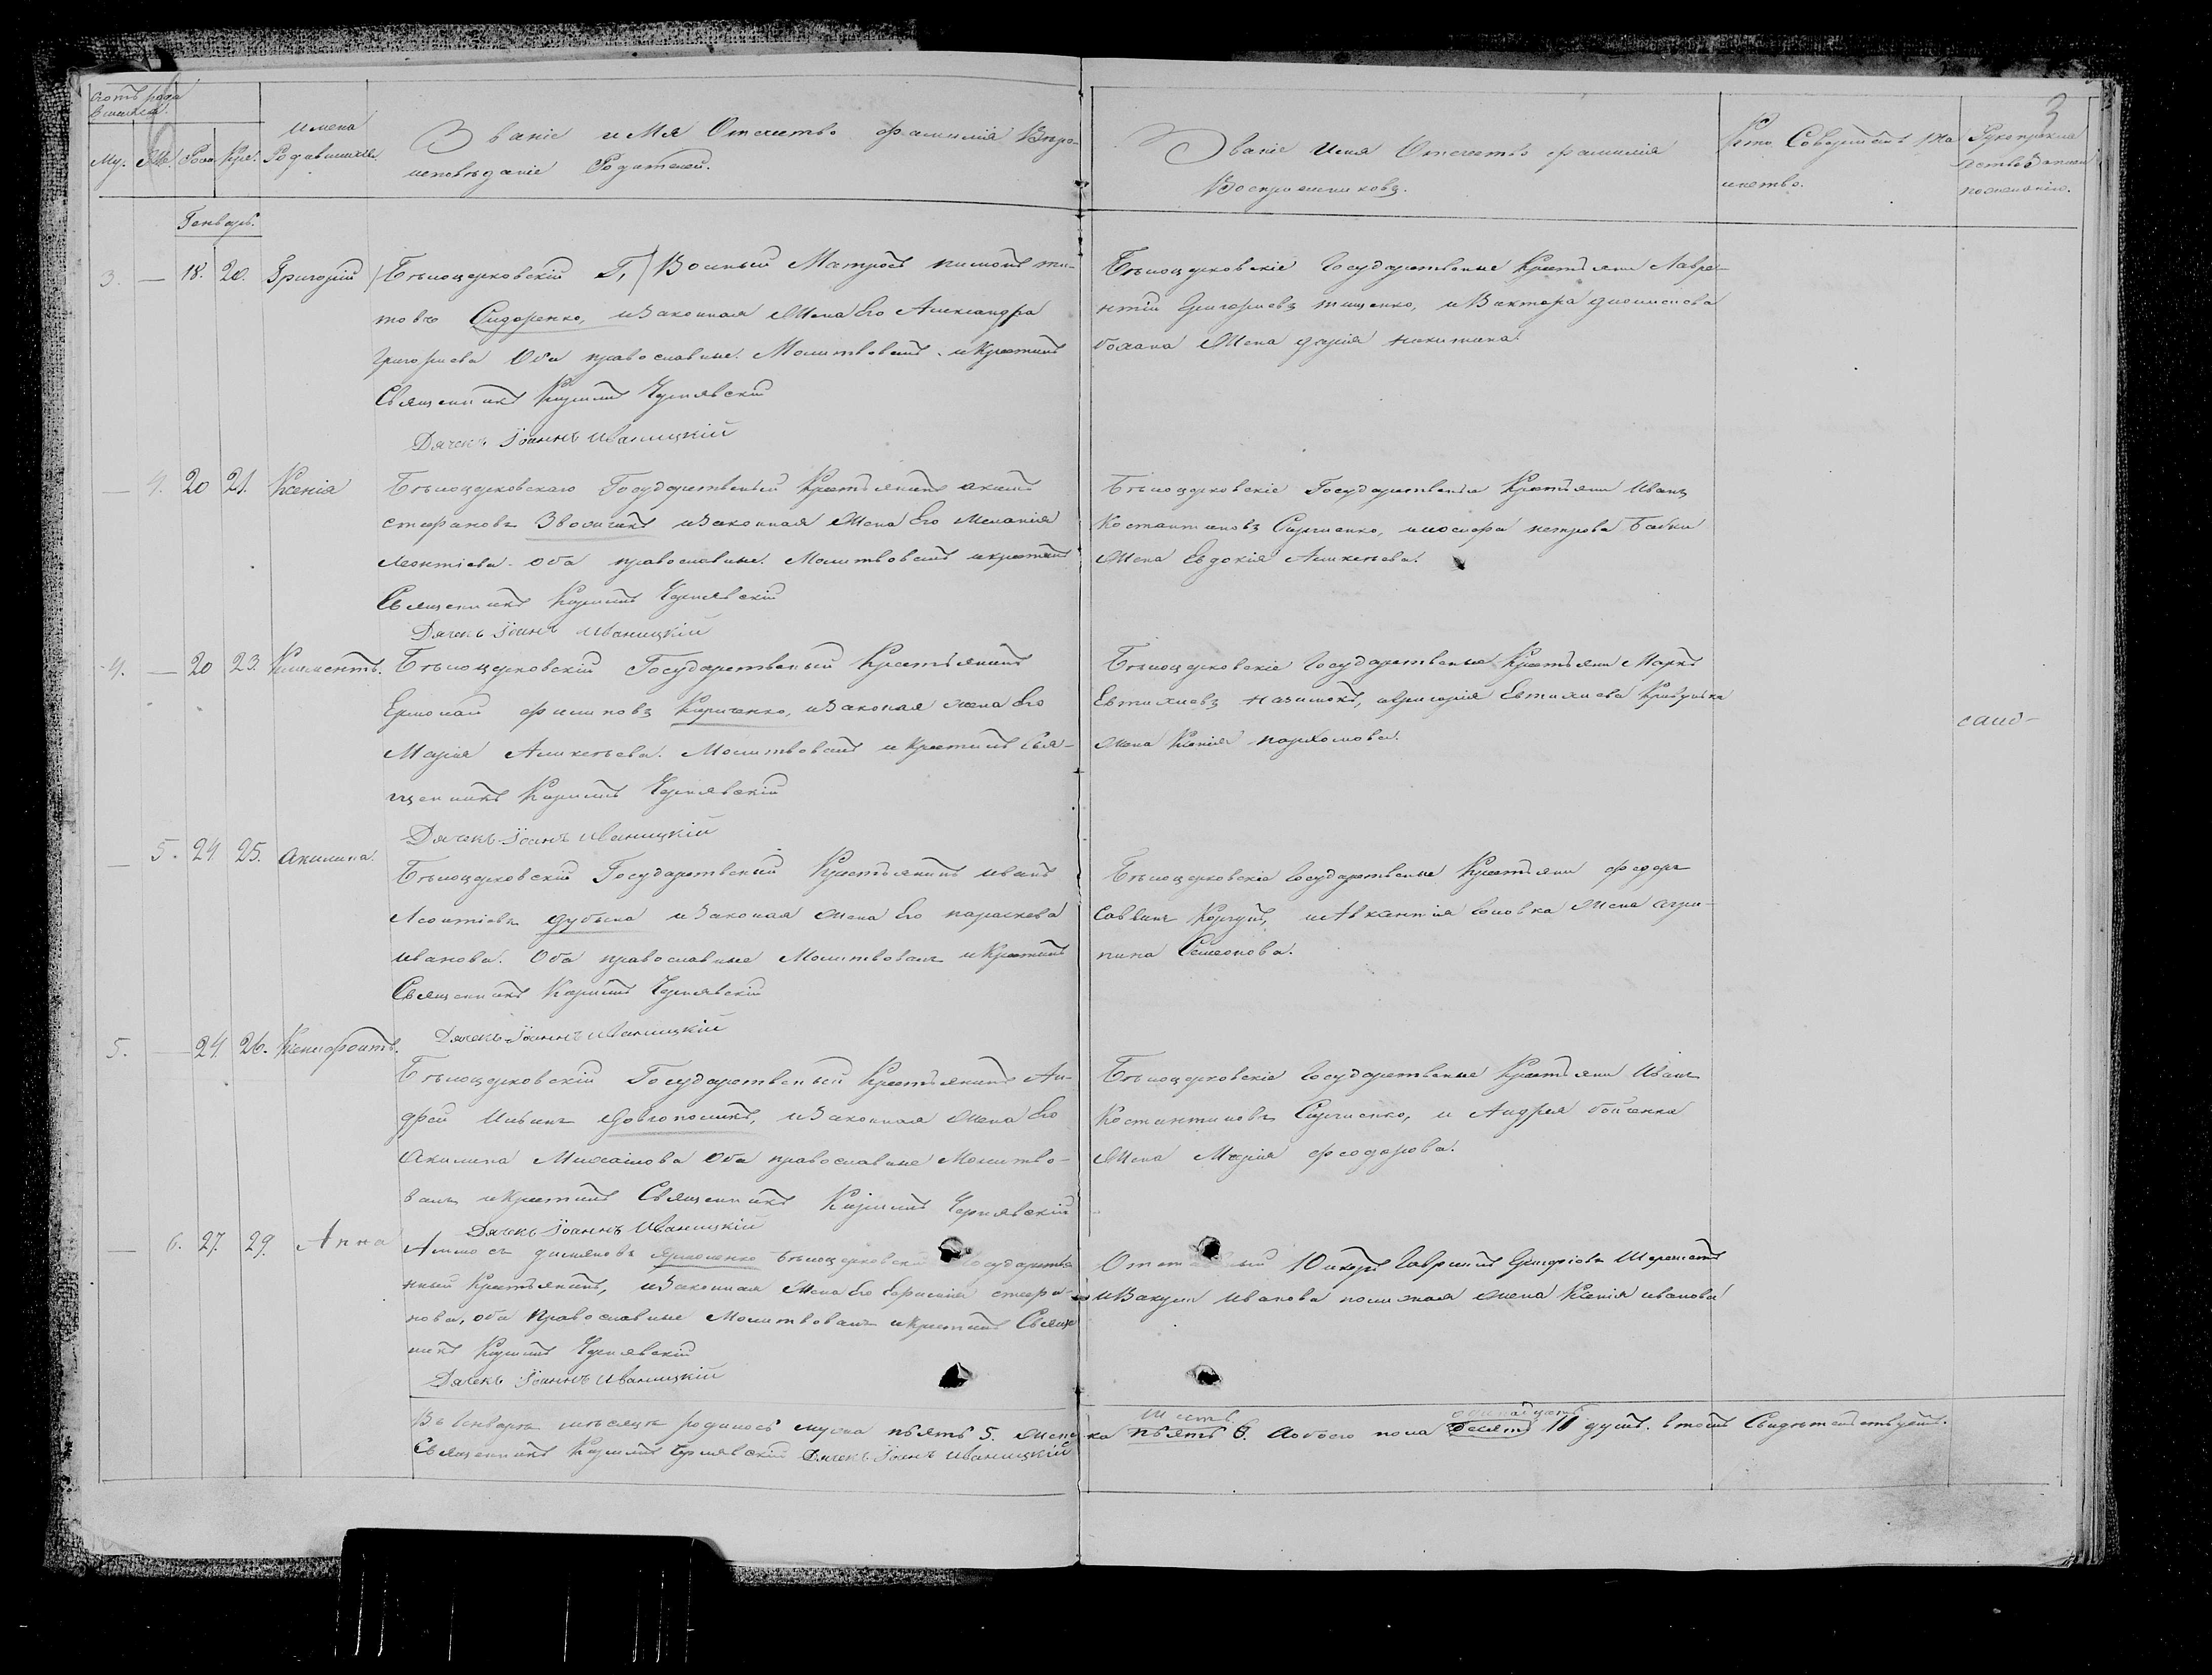 3
Счотъ родившихся
Му. Же. Рож. Кре.
Имена Родавшихся
Званіе имя Отечество фамилія Вѣроисповѣданіе Родителей.
Званіе Имя Отечество фамилія Воспріемниковъ.
Кто Совершалъ Таинство.
Рукоприкла
Генварь.
3. — 18. 20. Григорій
Бѣлоцерковскій Г, Военный Матросъ пимонъ ти-
товъ Сидоренко, изаконная Жена Его Александра
Григорьева Оба православные. Молитвовалъ икрестилъ
Священникъ Кириллъ Чернявскій
Дячекъ Іоаннъ Иваницкій
Бѣлоцерковскіе Государственные Крестьяни Лавре-
нтій Григорьевъ тищенко, и Виктора дионисова
Жена дарія никитина
— 4. 20 21. Ксенія
Бѣлоцерковскаго Государственный Крестьянинъ акимъ
стефановъ Зволичекъ изаконная Жена Его Меланія
Леонтіева. Оба православные. Молитвовалъ икрестилъ
Священникъ Кириллъ Чернявскій
Дячекъ Іоанъ Иваницкій
Бѣлоцерковскіе Государственые Крестьяни Иванъ
Костантиновъ Сергіенко, иіосифа петрова Бабки
Жена Евдокія Аникеева.
4. — 20 23. Климентъ.
Бѣлоцерковскій Государственый Крестьянинъ
Ермолай филиповъ Кириченко, изаконая жена Его
Марія Аникеева. Молитвовалъ икрестилъ Свя-
щенникъ Кириллъ Чернявскій
Дячекъ Іоанъ Иваницкій
Бѣлоцерковскіе Государственые Крестьяни Марко
Евтихиевъ назимокъ, игригорія Евтихиева
Жена Ксенія пархомова.
— 5. 24 25. Акилина.
Бѣлоцерковскій Государственый Крестьянинъ иванъ
Леонтіевъ дубына изаконая Жена Его параскева
иванова. Оба православные Молитвовалъ икрестилъ
Священникъ Кириллъ Чернявскій
Дячекъ Іоаннъ Иваницкій
Бѣлоцерковскіе Государственые Крестьяни федоръ
Саввинъ Коргутъ, иАвксентія Головка Жена агри-
пина Семеонова.
5. — 24 26. Ксенофонтъ.
Бѣлоцерковскій Государственый Крестьянинъ Ан-
дрей Ильинъ Довгополикъ, изаконная Жена Его
Акилина Михаилова Оба православные Молитво-
валъ икрестилъ Священникъ Кириллъ Чернявскій
Дячекъ Іоаннъ Иваницкій
Бѣлоцерковскіе Государственые Крестьяни Иванъ
Костантиновъ Сергіенко, и Андрея бойченка
Жена Марія феодорова.
— 6. 27. 29. Анна
Аммосъ демяновъ Ермоленко бѣлоцерковскій Государстве
нный Крестьянинъ, изаконная Жена Его Ефросинія стефа-
нова, оба Православные Молитвовалъ икрестилъ Священ
никъ Кириллъ Чернявскій
Дячекъ Іоаннъ Иваницкій
Юнкеръ Гавріилъ Григоріевъ Шереметъ
иВакулы Иванова жена Ксенія иванова
Въ Генварѣ мѣсяцѣ родилось мужа пѣять 5. женска шесть пѣять 6. Аобоего пола одинадцять десять 11 душъ. втомъ Свидѣтельствуетъ.
Священникъ Кириллъ Чернявскій Дячекъ Іоанъ Иваницкій